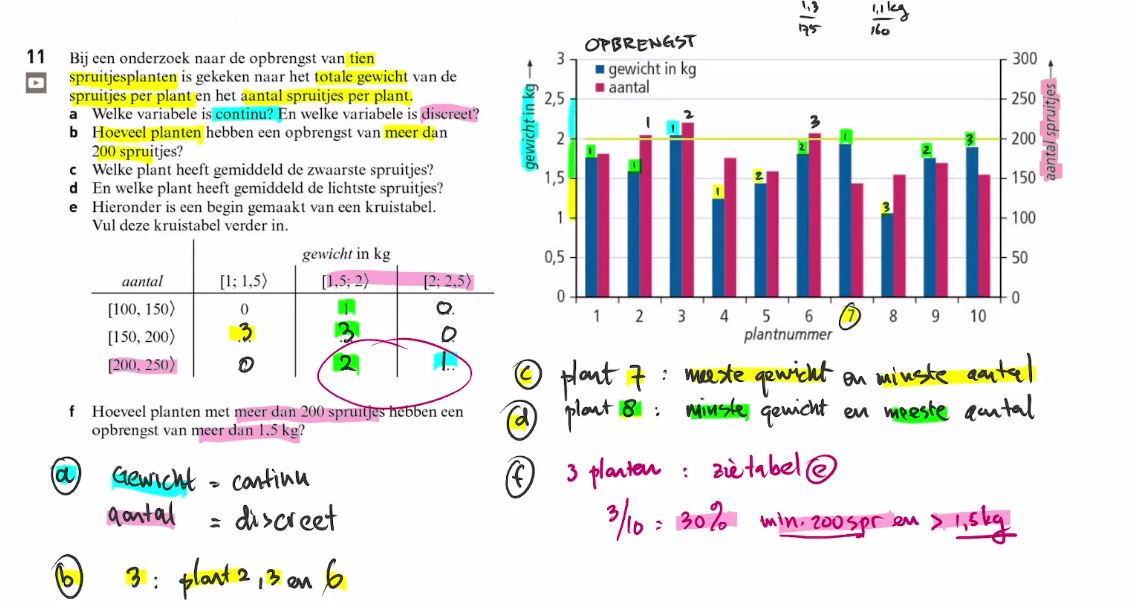 1,3
175
1,1 kg
160
11 Bij een onderzoek naar de opbrengst van tien
spruitjesplanten is gekeken naar het totale gewicht van de
spruitjes per plant en het aantal spruitjes per plant.
a Welke variabele is continu? En welke variabele is discreet?
b Hoeveel planten hebben een opbrengst van meer dan
200 spruitjes?
c Welke plant heeft gemiddeld de zwaarste spruitjes?
d En welke plant heeft gemiddeld de lichtste spruitjes?
e Hieronder is een begin gemaakt van een kruistabel.
Vul deze kruistabel verder in.
gewicht in kg
aantal [1; 1,5⟩ [1,5; 2⟩ [2; 2,5⟩
[100, 150⟩ 0 1 0
[150, 200⟩ 3 3 0
[200, 250⟩ 0 2 1
f Hoeveel planten met meer dan 200 spruitjes hebben een
opbrengst van meer dan 1,5 kg?
a Gewicht = continu
aantal = discreet
b 3: plant 2, 3 en 6
OPBRENGST
gewicht in kg
aantal
gewicht in kg
3
2,5
2
1,5
1
0,5
0
aantal spruitjes
300
250
200
150
100
50
0
1 2 3
1 1 1 1 2 2 1 3 2 3
1 2 3 4 5 6 7 8 9 10
plantnummer
c plant 7: meeste gewicht en minste aantal
d plant 8: minste gewicht en meeste aantal
f 3 planten: zie tabel e
3/10 = 30% min. 200 spr en > 1,5 kg